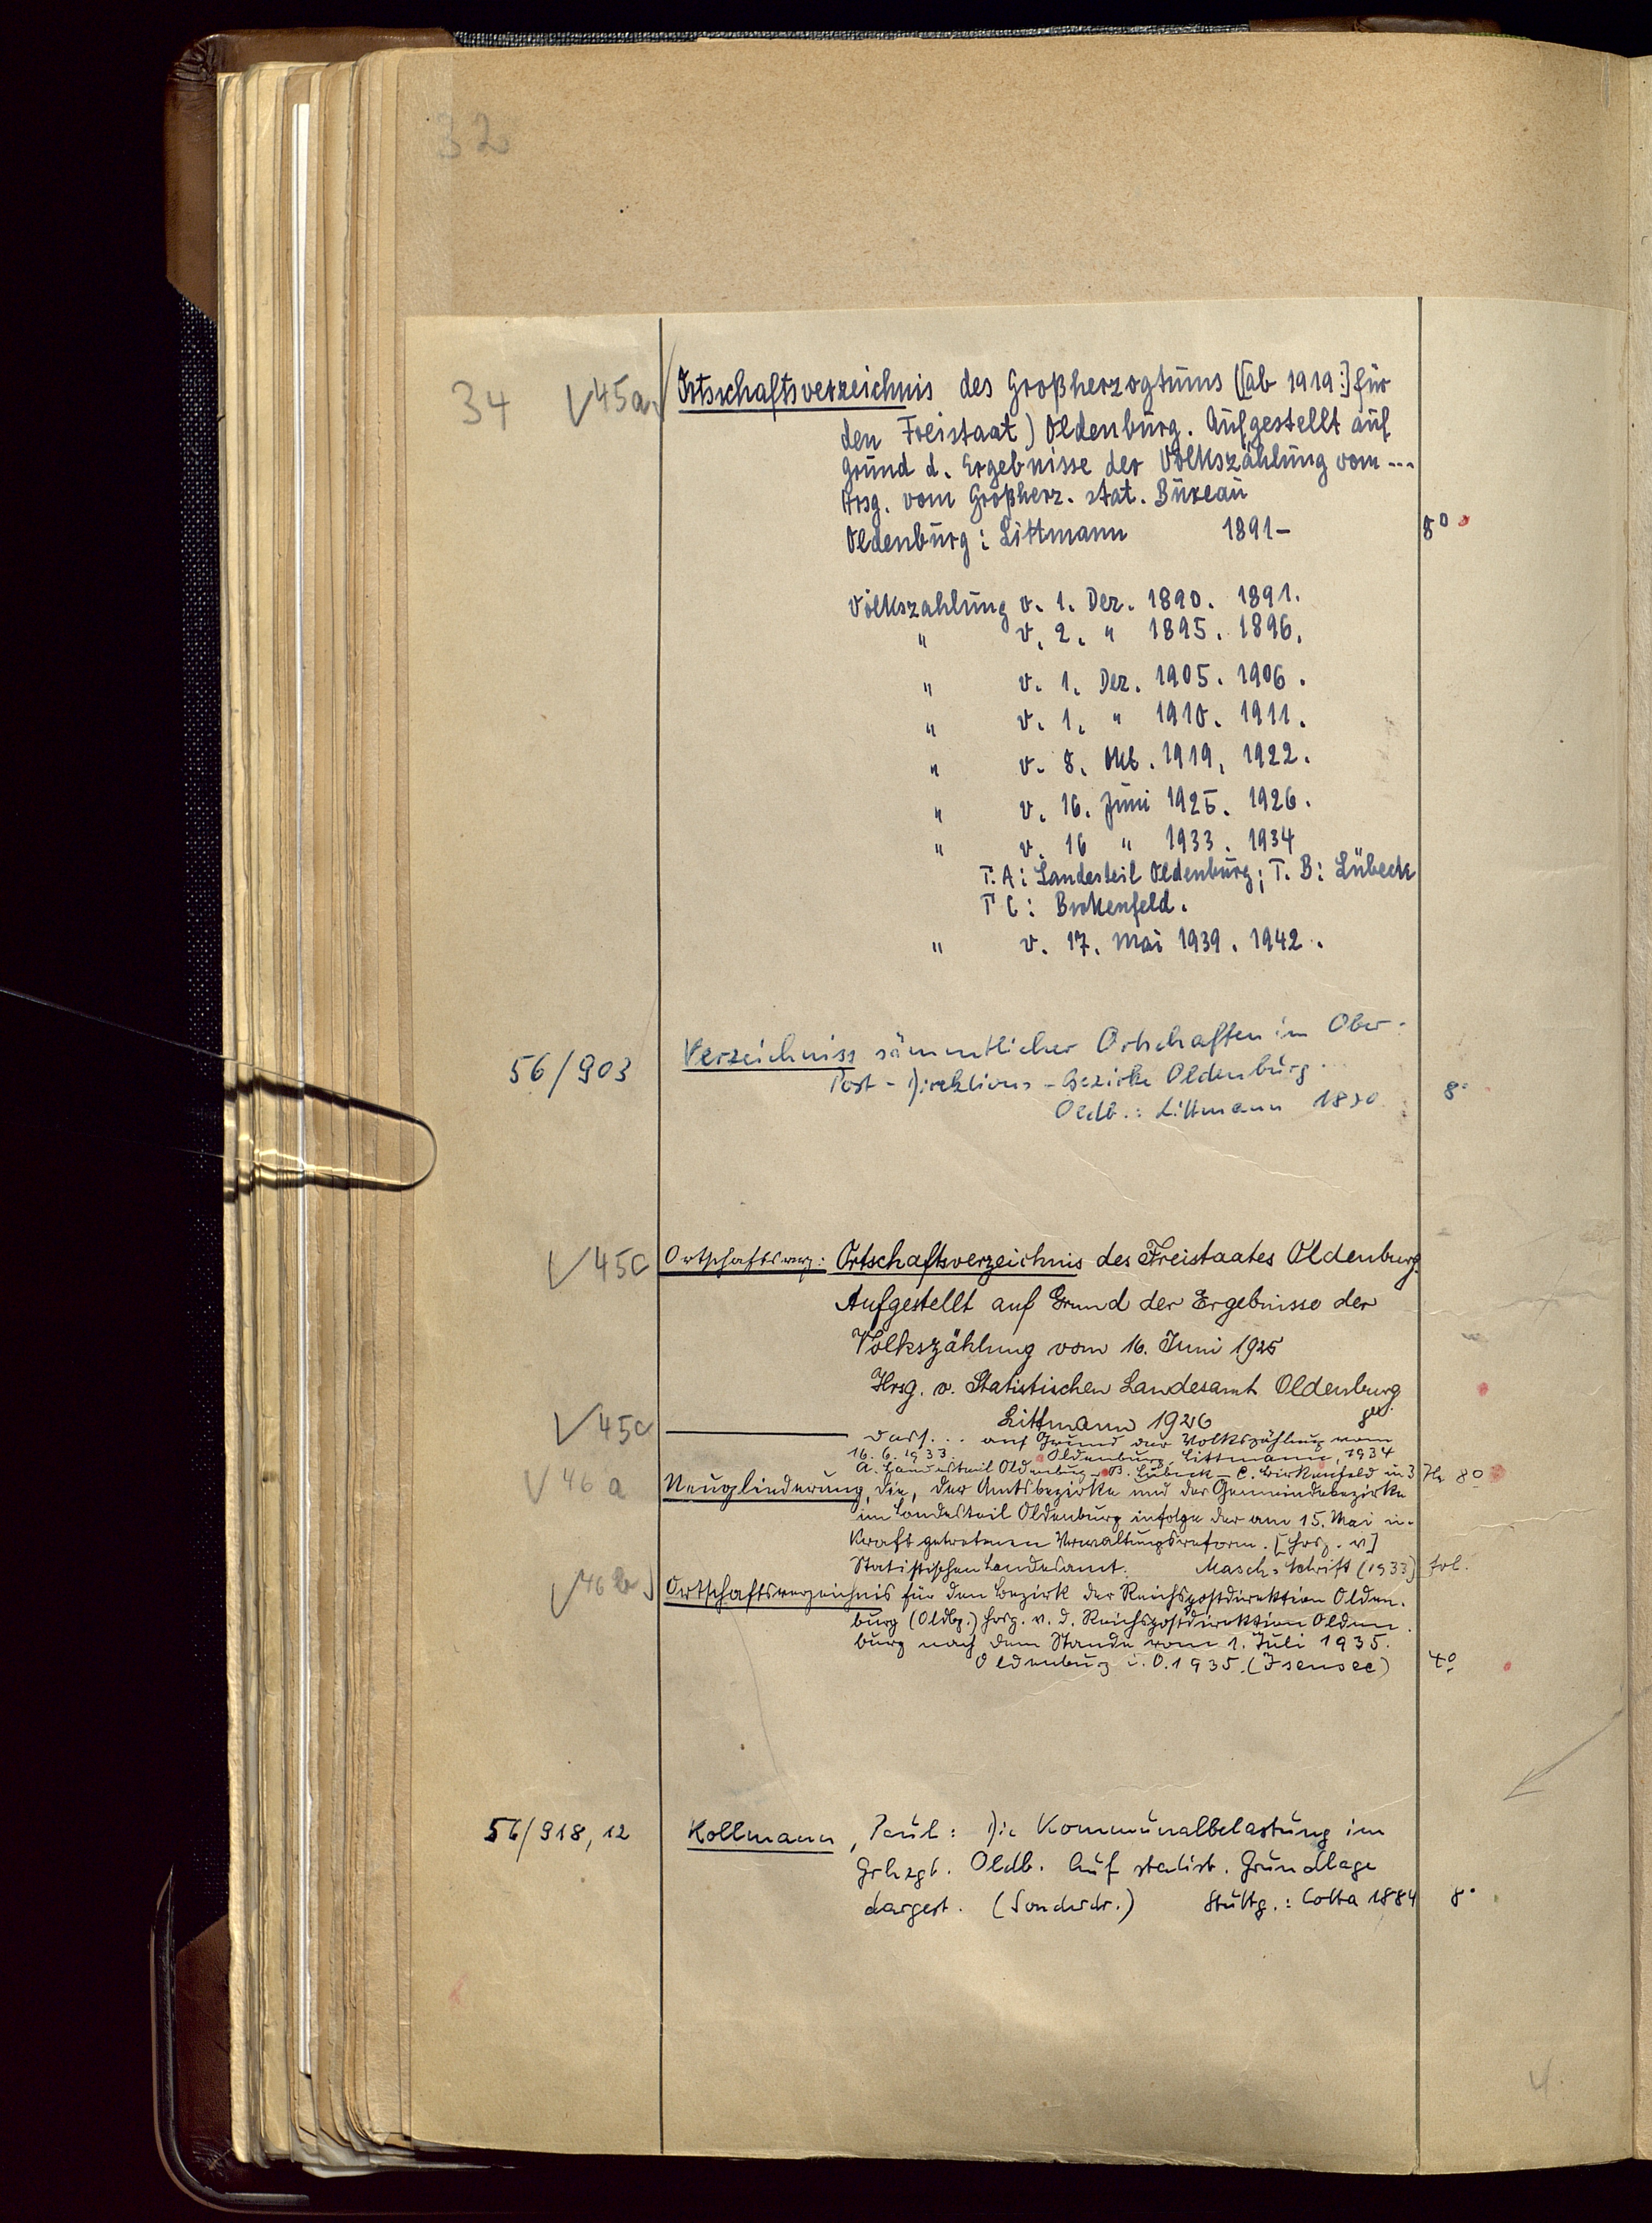 32
34 V45a. Ortschaftsverzeichnis des Großherzogtums ([ab 1919:] für
den Freistaat) Oldenburg. Aufgestellt auf
Grund d. Ergebnisse der Volkszählung vom ...
Hrsg. vom Großherz. stat. Büreau
Oldenburg: Littmann 1891- 8°
Volkszahlung v. 1. Dez. 1890. 1891.
" v. 2. " 1895. 1896.
" v. 1. Dez. 1905. 1906.
" v. 1. " 1910. 1911.
" v. 8. Okt. 1919. 1922.
" v. 16. Juni 1925. 1926.
" v. 16 " 1933. 1934
T. A: Landesteil Oldenburg; T. B: Lübeck
T C: Birkenfeld.
" v. 17. Mai 1939. 1942.
56/903 Verzeichniss sämmtlicher Ortschaften im Ober-
Post-Direktions-Bezirke Oldenburg.
Oldb.: Littmann 8°
V45c Ortschaftsverz: Ortschaftsverzeichnis des Freistaates Oldenburg.
Aufgestellt auf Grund der Ergebnisse der
Volkszählung vom 16. Juni 1925
Hrsg. v. Statistischen Landesamt Oldenburg
Littmann 1926
V45c dass. .. auf Grund der Volkszählung vom
16.6.1933. Oldenburg, Littmann, 1934
A. Landesteil Oldenburg – B. Lübeck – C. Birkenfeld in 3 He 8°
V46a Neugliederung, die, der Amtsbezirke und der Gemeindebezirke
im Landesteil Oldenburg infolge der am 15. Mai in
Kraft getretenen Verwaltungsreform. [Hrsg. v]
Statistischen Landesamt. Masch. Schrift (1933) fol.
V46b Ortschaftsverzeichnis für den Bezirk der Reichspostdirektion Olden-
burg (Oldbg.) hrsg. v. d. Reichspostdirektion Olden
burg nach dem Stande vom 1. Juli 1935.
Oldenburg i. O. 1935. (Isensee) 4°
56/918,12 Kollmann, Paul: Die Kommunalbelastung im
Grhzgt. Oldb. Auf statist. Grundlage
dargest. (Sonderdr.) Stuttg.: Cotta 1884 8°
4.